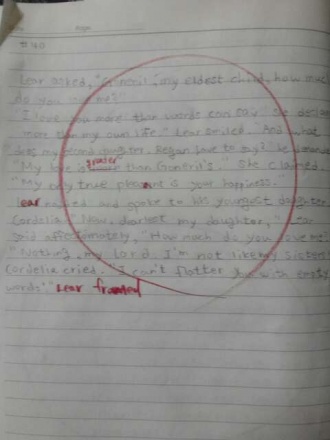 Lear asked, "Goneril, my eldest child, how much
do you love me?"
"I love you more than words can say. She
more than my own life." Lear smiled. And what
does my second daugter. Regan have to say? he
"My love is greater than Goneril's." She claimed.
"My only true is your happiness."
Lear and spoke to his youngest daughter,
Cordelia. Now, dearest my daughter," Lear
said affectionately, "How much do you love me?
"Nothing, my lord. I'm not like my sisters"
Cordelia cried. "I can't flatter you with empty
words." Lear